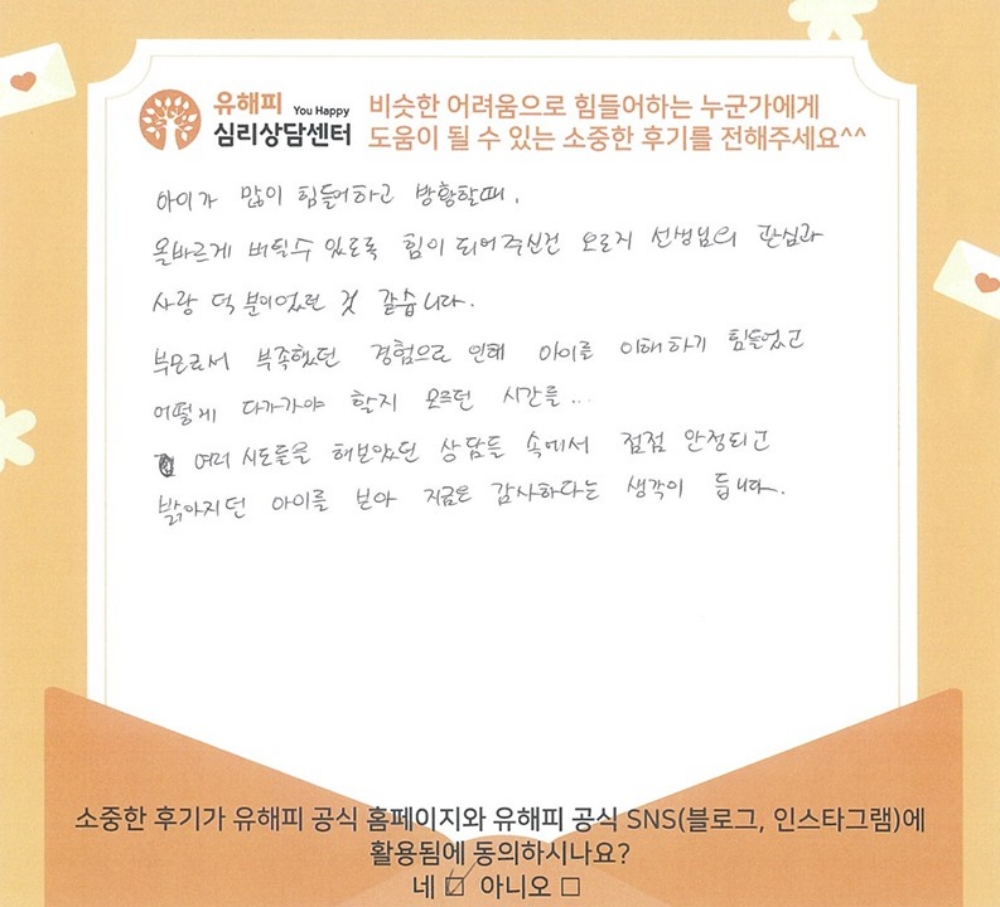 유해피 You Happy
심리상담센터
비슷한 어려움으로 힘들어하는 누군가에게
도움이 될 수 있는 소중한 후기를 전해주세요^^
아이가 많이 힘들어하고 방황할때,
올바르게 버틸수 있도록 힘이 되어주신건 오로지 선생님의 관심과
사랑 덕분이었던 것 같습니다.
부모로서 부족했던 경험으로 인해 아이를 이해하기 힘들었고
어떻게 다가가야 할지 모르던 시간을...
여러 시도들을 해보았던 상담들 속에서 점점 안정되고
밝아지던 아이를 보아 지금은 감사하다는 생각이 듭니다.
소중한 후기가 유해피 공식 홈페이지와 유해피 공식 SNS(블로그, 인스타그램)에
활용됨에 동의하시나요?
네 ☑ 아니오 ☐